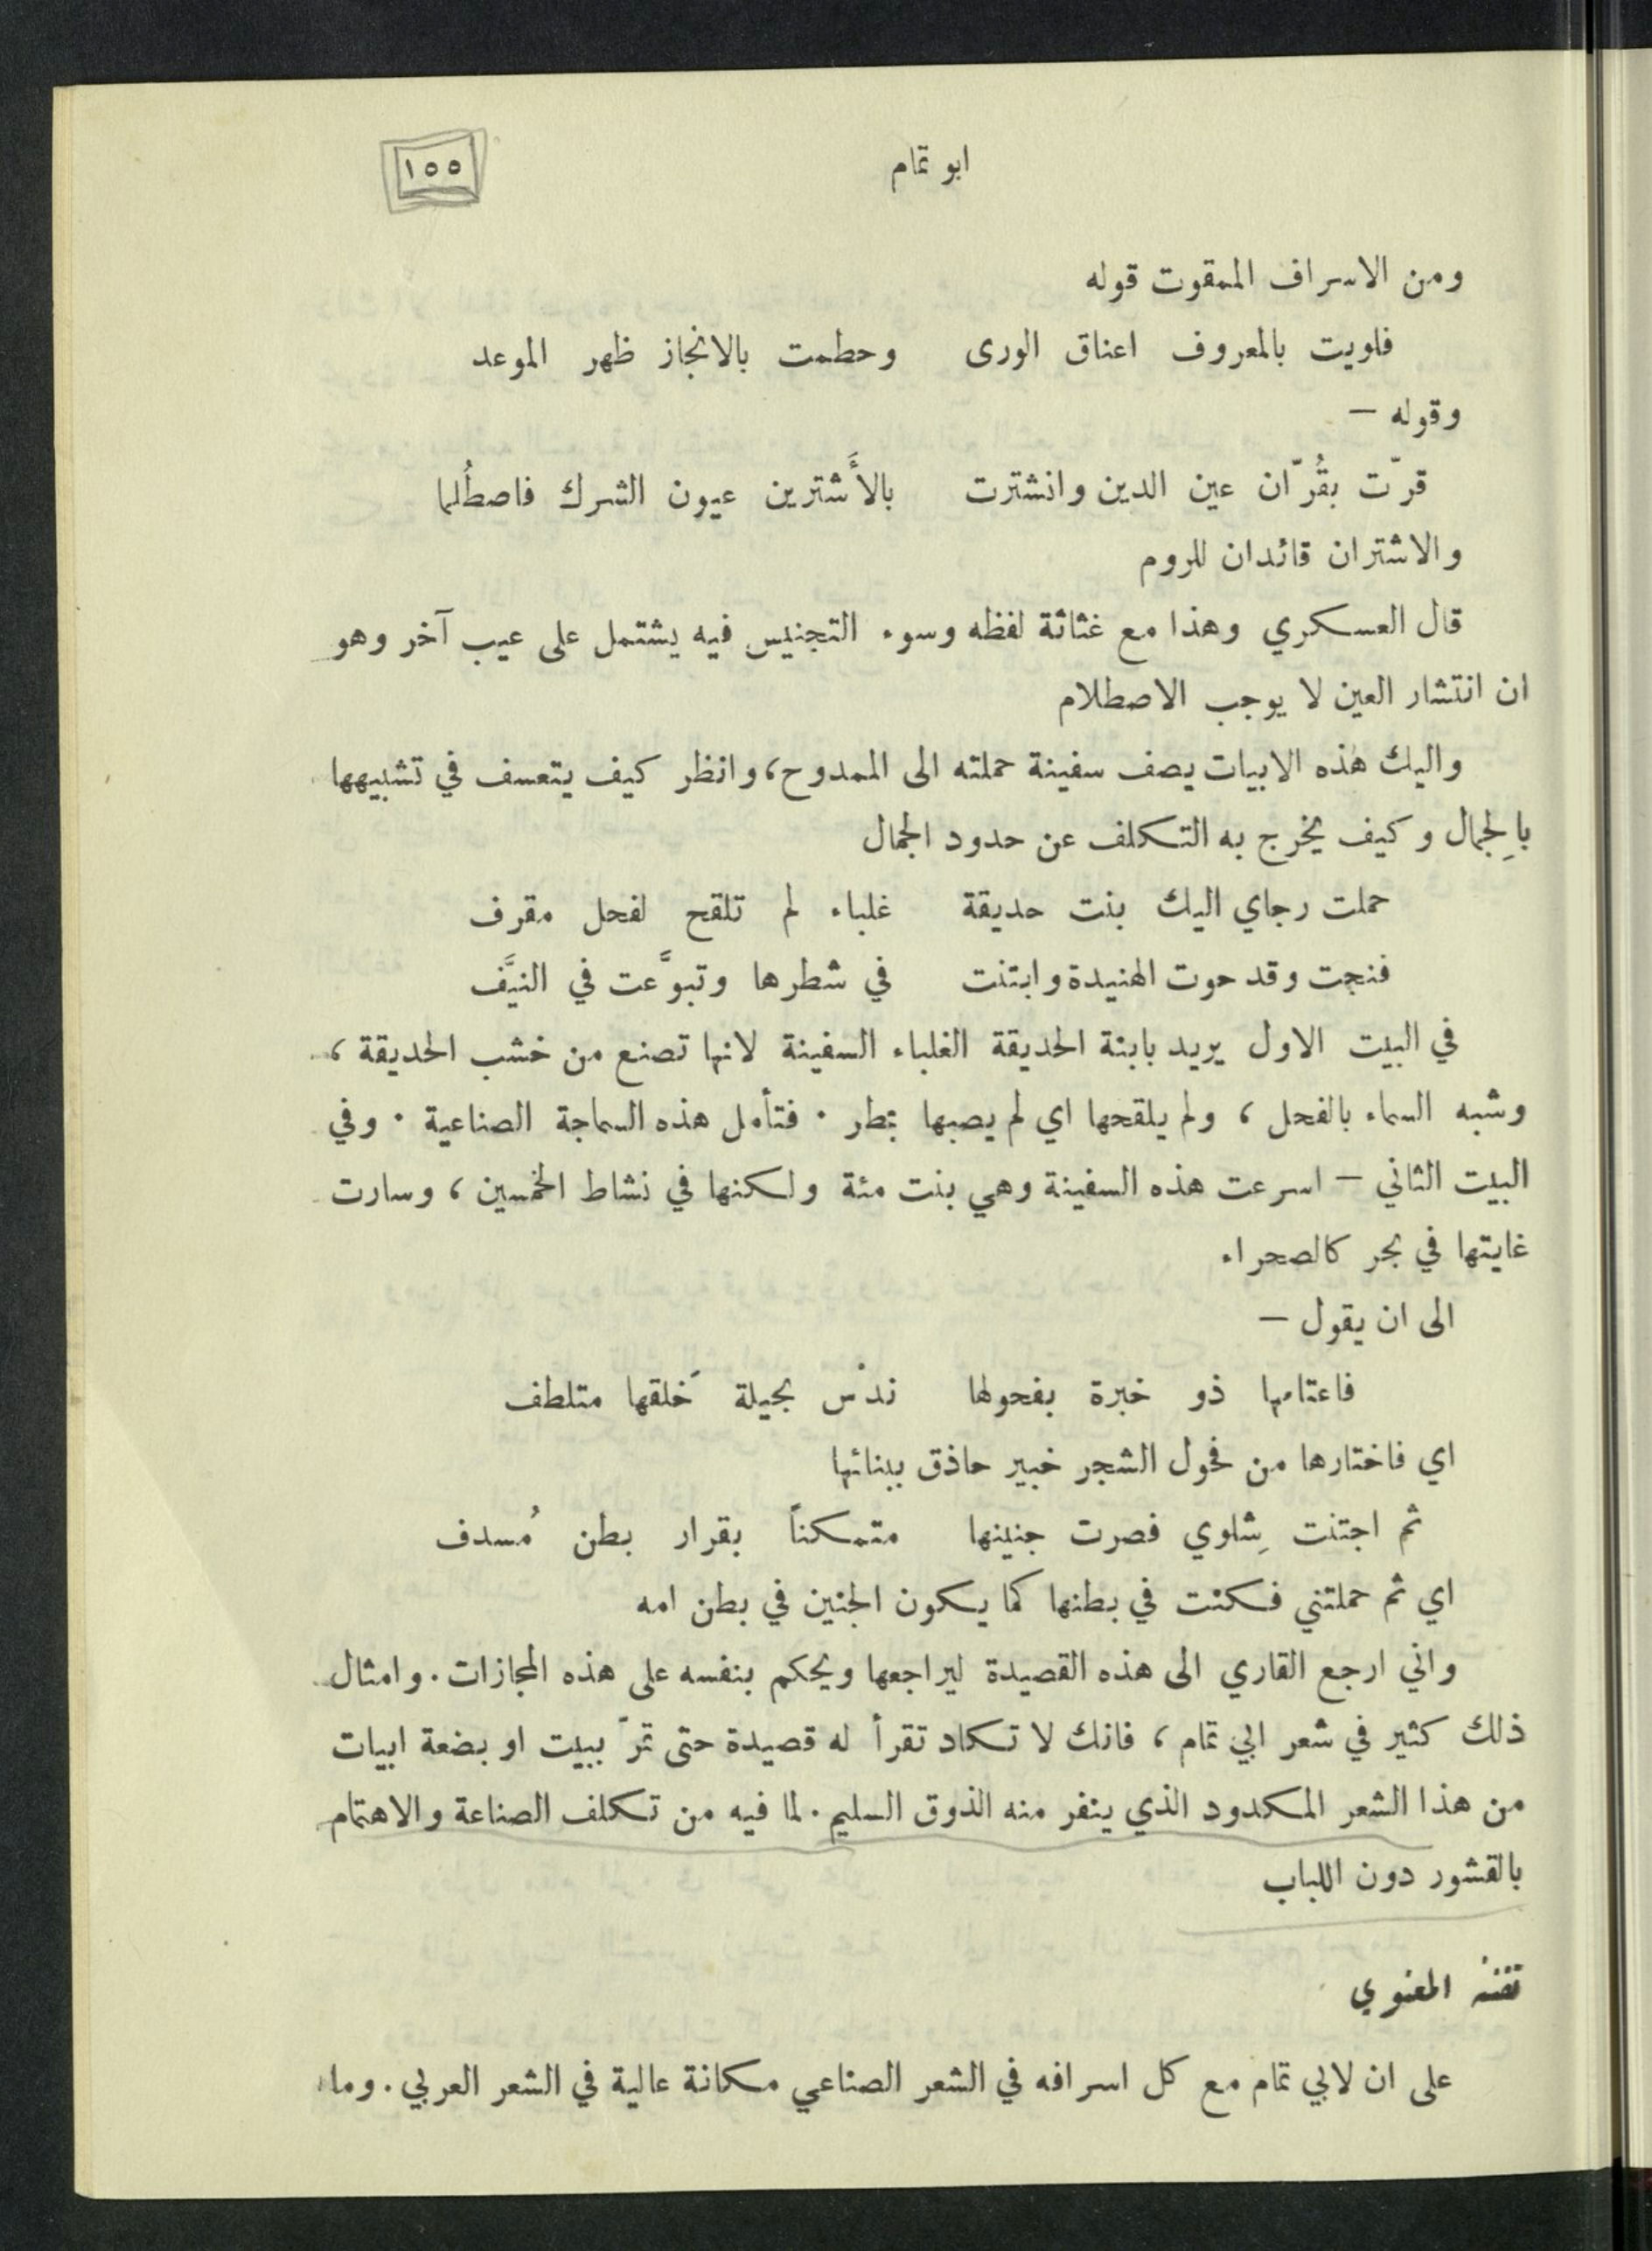 ابو تمام
١٥٥
ومن الاسراف الممقوت قوله
فلويت بالمعروف اعناق الورى وحطمت بالانجاز ظهر الموعد
وقوله —
قرّت بقُرّان عين الدين وانشترت بالأَشترين عيون الشرك فاصطُلما
والاشتران قائدان للروم
قال العسكري وهذا مع غثاثة لفظه وسوء التجنيس فيه يشتمل على عيب آخر وهو
ان انتشار العين لا يوجب الاصطلام
واليك هذه الابيات يصف سفينة حملته الى الممدوح، وانظر كيف يتعسف في تشبيهها
بالِجمال وكيف يخرج به التكلف عن حدود الجمال
حملت رجاي اليك بنت حديقة غلباء لم تلقح لفحل مقرف
فنجت وقد حوت الهنيدة وابتنت في شطرها وتبوَّعت في النيَّف
في البيت الاول يريد بابنة الحديقة الغلباء السفينة لانها تصنع من خشب الحديقة ،
وشبه السماء بالفحل ، ولم يلقحها اي لم يصبها بمطر . فتأمل هذه السماجة الصناعية . وفي
البيت الثاني — اسرعت هذه السفينة وهي بنت مئة ولكنها في نشاط الخمسين ، وسارت
غايتها في بحر كالصحراء
الى ان يقول —
فاعتامها ذو خبرة بفحولها ندُس بحيلة خَلقها متلطف
اي فاختارها من فحول الشجر خبير حاذق ببنائها
ثم اجتنت شِلوي فصرت جنينها متمكناً بقرار بطن مُسدف
اي ثم حملتني فكنت في بطنها كما يكون الجنين في بطن امه
واني ارجع القاري الى هذه القصيدة ليراجعها ويحكم بنفسه على هذه المجازات . وامثال
ذلك كثير في شعر ابي تمام ، فانك لا تكاد تقرأ له قصيدة حتى تمرّ ببيت او بضعة ابيات
من هذا الشعر المكدود الذي ينفر منه الذوق السليم . لما فيه من تكلف الصناعة والاهتمام
بالقشور دون اللباب
تفننه المعنوي
على ان لابي تمام مع كل اسرافه في الشعر الصناعي مكانة عالية في الشعر العربي . وما